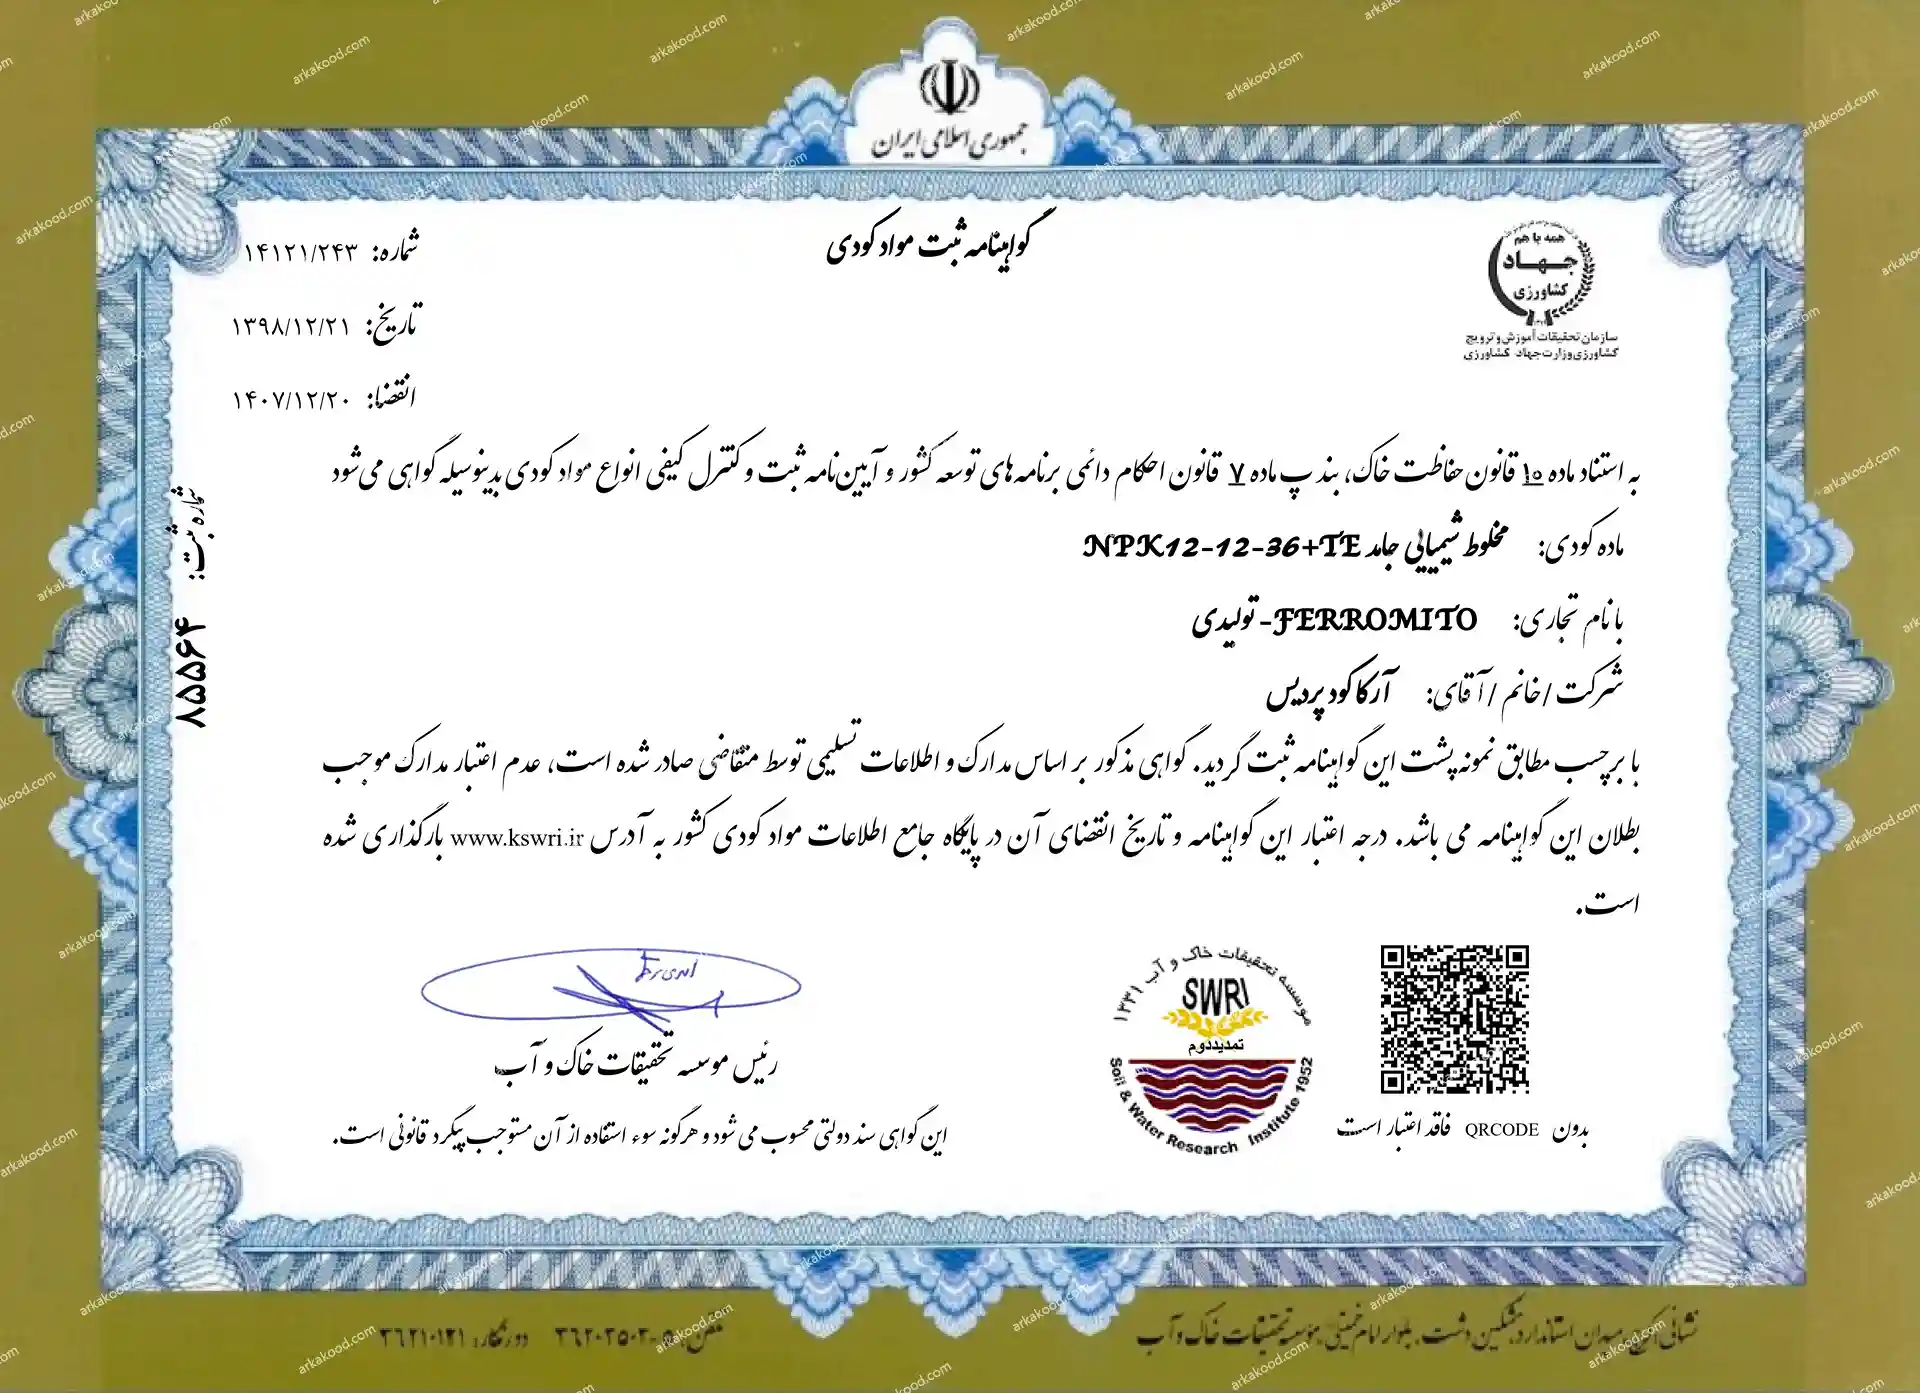 جمهوری اسلامی ایران
گواهینامه ثبت مواد کودی
شماره: ۱۴۱۲۱/۲۴۳
تاریخ: ۱۳۹۸/۱۲/۲۱
انقضا: ۱۴۰۷/۱۲/۲۰
همه با هم
جهاد
کشاورزی
سازمان تحقیقات آموزش و ترویج
کشاورزی وزارت جهاد کشاورزی
به استناد ماده ۱۰ قانون حفاظت خاک، بند پ ماده ۷ قانون احکام دائمی برنامه های توسعه کشور و آیین نامه ثبت و کنترل کیفی انواع مواد کودی بدینوسیله گواهی می شود
ماده کودی: مخلوط شیمیایی جامد NPK12-12-36+TE
با نام تجاری: FERROMITO- تولیدی
شرکت / خانم / آقای: آرکا کود پردیس
با برچسب مطابق نمونه پشت این گواهینامه ثبت گردید. گواهی مذکور بر اساس مدارک و اطلاعات تسلیمی توسط متقاضی صادر شده است، عدم اعتبار مدارک موجب
بطلان این گواهینامه می باشد. درجه اعتبار این گواهینامه و تاریخ انقضای آن در پایگاه جامع اطلاعات مواد کودی کشور به آدرس www.kswri.ir بارگذاری شده
است.
شماره ثبت: ۸۵۵۶۴
موسسه تحقیقات خاک و آب ۱۳۳۱
SWRI
تمدید دوم
Soil & Water Research Institute 1952
بدون QRCODE فاقد اعتبار است
رئیس موسسه تحقیقات خاک و آب
این گواهی سند دولتی محسوب می شود و هرگونه سوء استفاده از آن مستوجب پیگرد قانونی است.
میدان استاندارد، مشکین دشت، بلوار امام خمینی، موسسه تحقیقات خاک و آب
دورنگار: ۳۶۲۱۰۱۲۱
arkakood.com